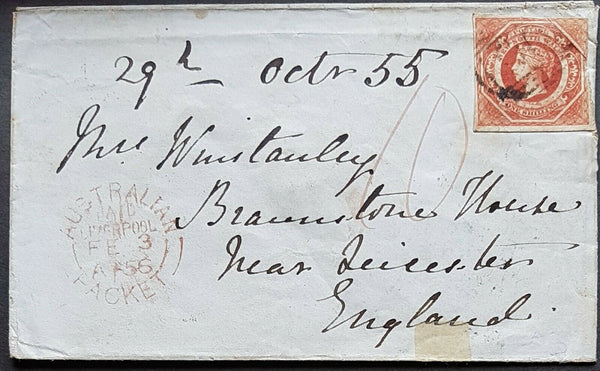 29th Octr 55
10
Mrs Winstanley
Braunstone House
Near Leicester
England.
AUSTRALIAN
PAID
LIVERPOOL
FE 3
A 56
PACKET
ONE SHILLING